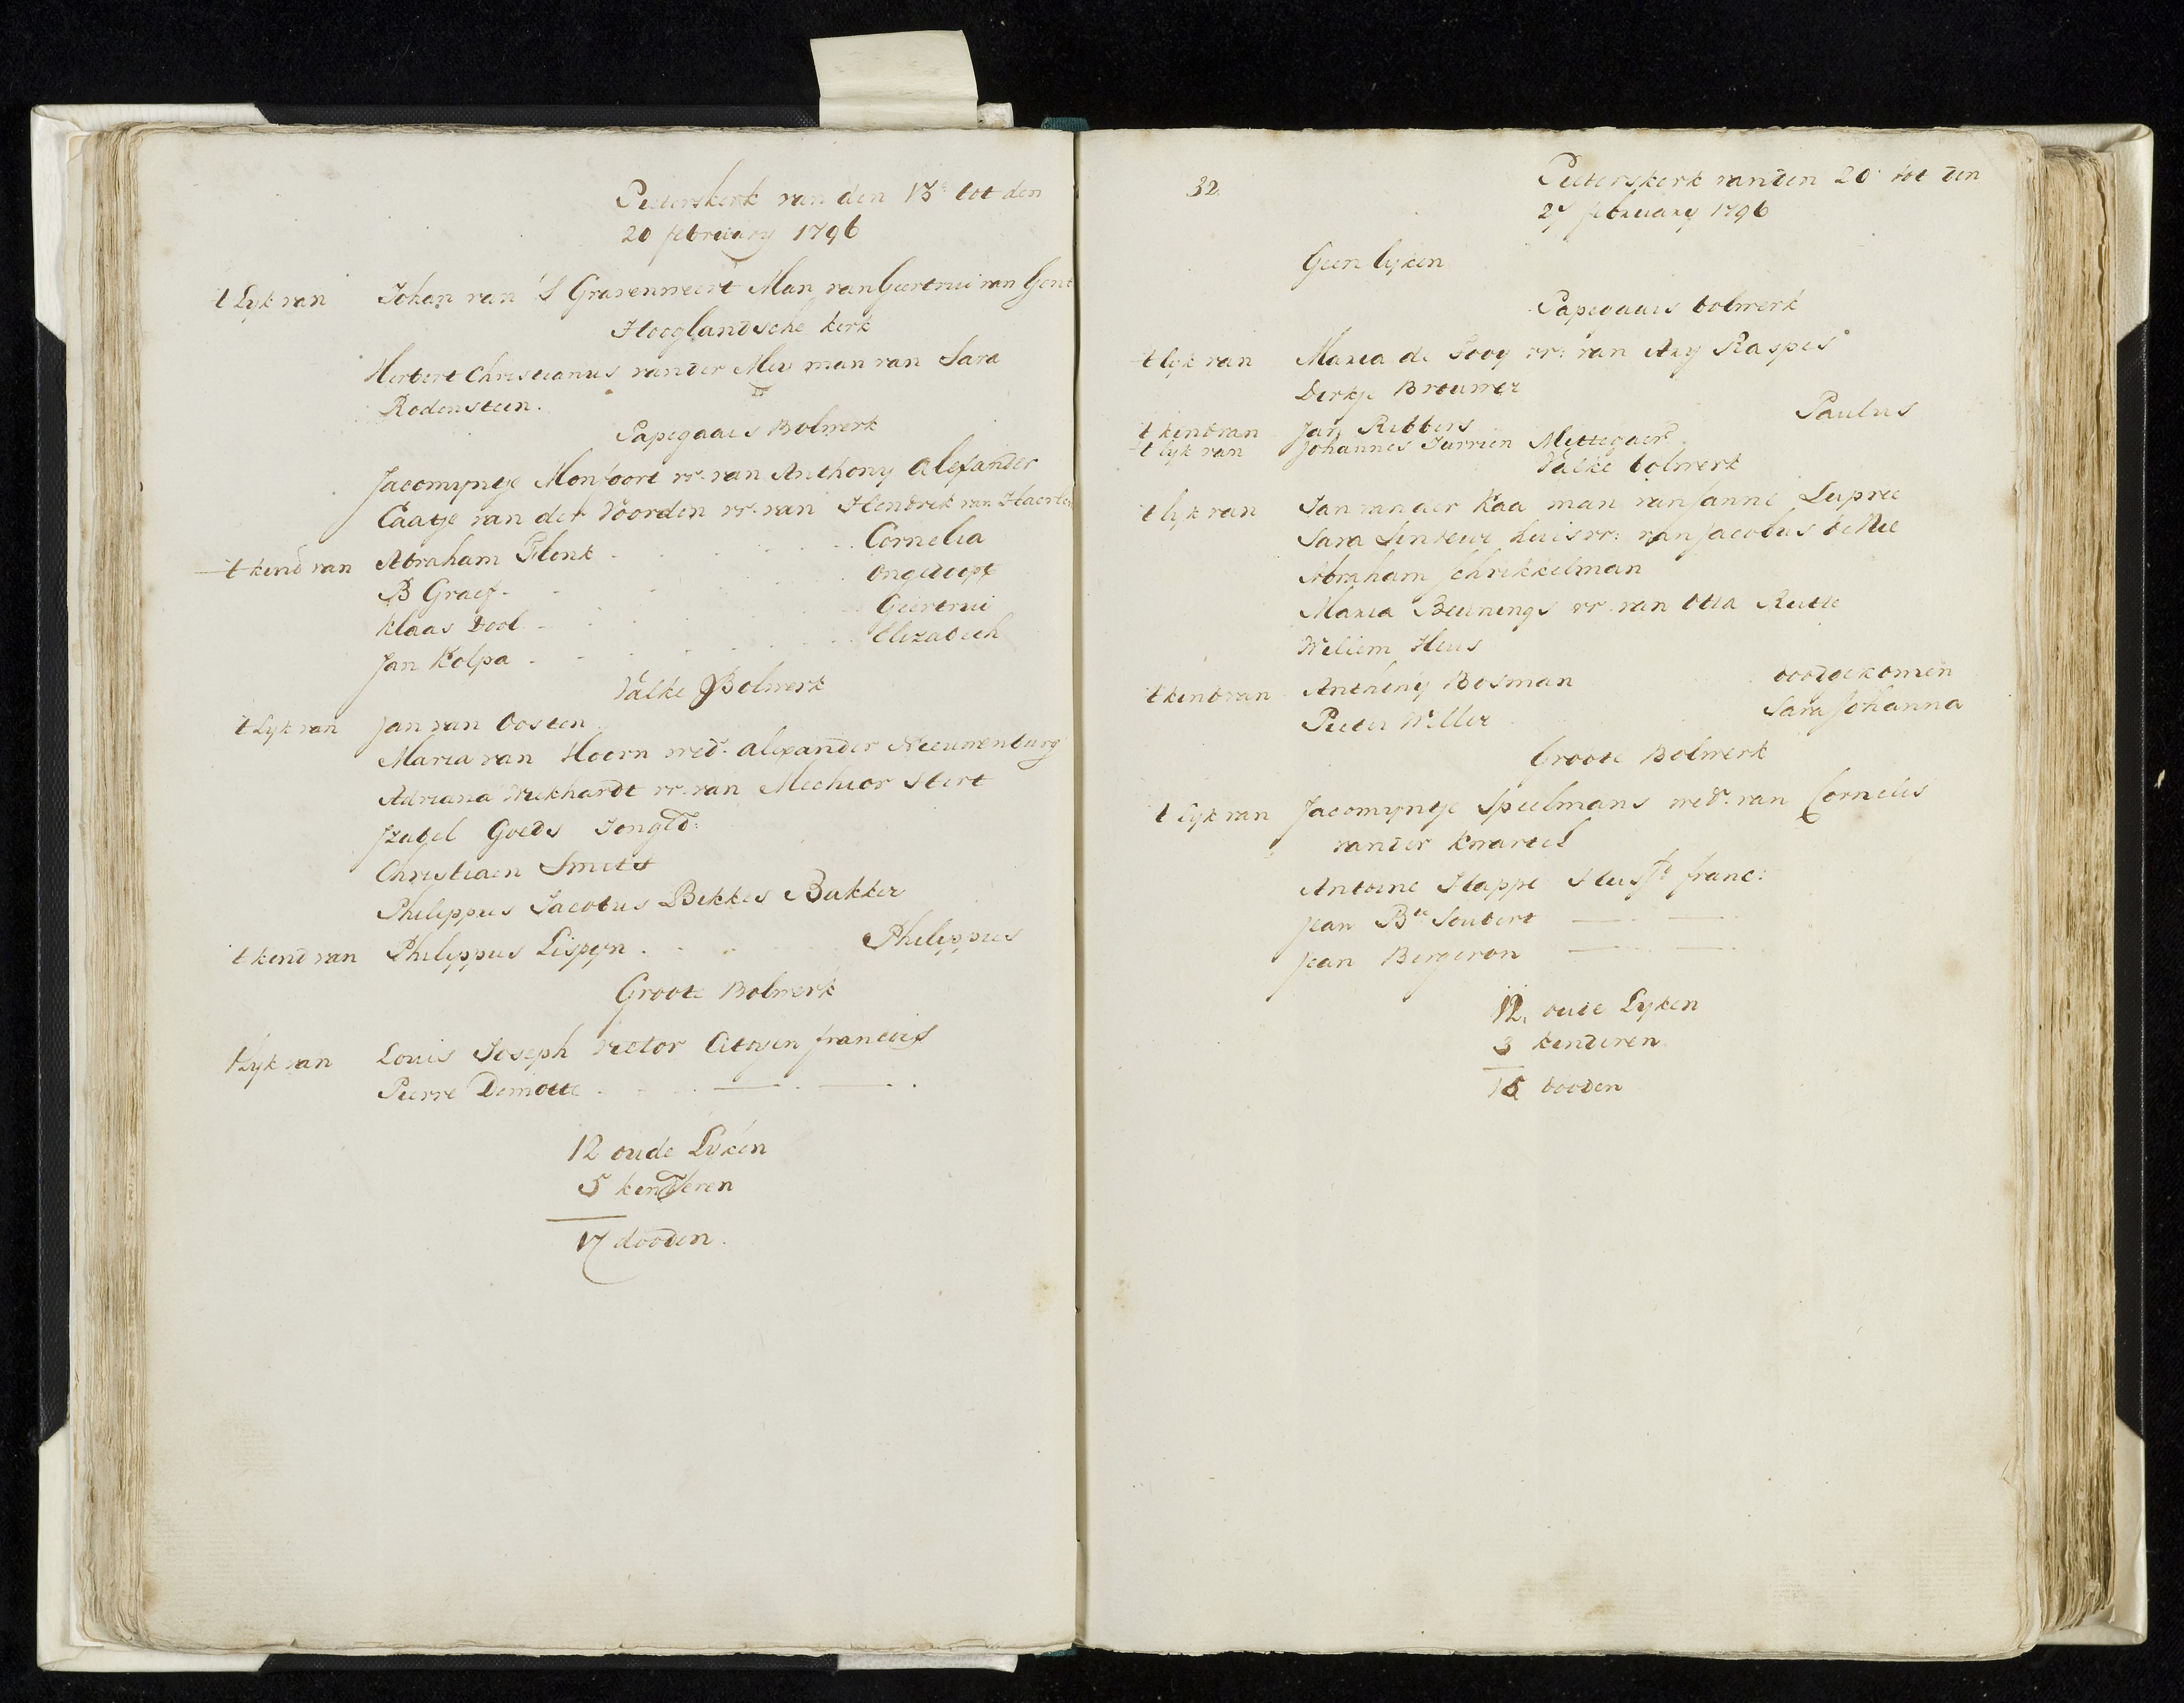 Pieterskerk van den 13e tot den
20 february 1796
't Lyk van Johan van 'S Gravenweert Man van Geertrui van Gent
Hooglandsche kerk
Herbert Christianus vander Mey man van Sara
Rodensteen.
Papegaais Bolwerk
Jacomyntje Monfoort vr. van Anthony Alexander
Caatje van der Voorden vr. van Hendrik van Haerlem
't kind van Abraham Flenk Cornelia
B Graef ongedoopt
Klaas Dool Geertrui
Jan Kolpa Elizabeth
Valke Bolwerk
't Lyk van Jan van Oosten
Maria van Hoorn wed. Alexander Nieuwenburg
Adriana Wiekhardt vr. van Mechior Stert
Izabel Goeds Jongd:
Christiaen Smits
Philippus Jacobus Bekkes Bakker
't kind van Philippus Lispyn Philippus
Groote Bolwerk
't Lyk van Louis Joseph Victor Citoyen francois
Pierre Demotte
12 oude Lyken
5 kinderen
17 dooden.
32
Pieterskerk van den 20 tot den
27 february 1796
Geen lyken
Papegaais bolwerk
't lyk van Maria de Gooy vr: van Ary Raspes
Derkje Brouwer
't kind van Jan Ribbers Paulus
't lyk van Johannes Jurrien Mettegaer
Valke bolwerk
't lyk van Jan van der Kaa man van Sanne Lupree
Sara huisvr: van Jacobus de Nie
Abraham Schrikkelman
Maria Beunings vr. van Otta Reitte
Willem Heus
't kind van Anthony Bosman doodgekomen
Pieter Willer Sara Johanna
Groote Bolwerk
't Lyk van Jacomyntje Speelmans wed. van Cornelis
vander Kwartel
Antoine Flappe Husfd franc:
Jean Bte Joubert
Jean Bergeron
12 oude Lyken
3 kinderen
15 dooden